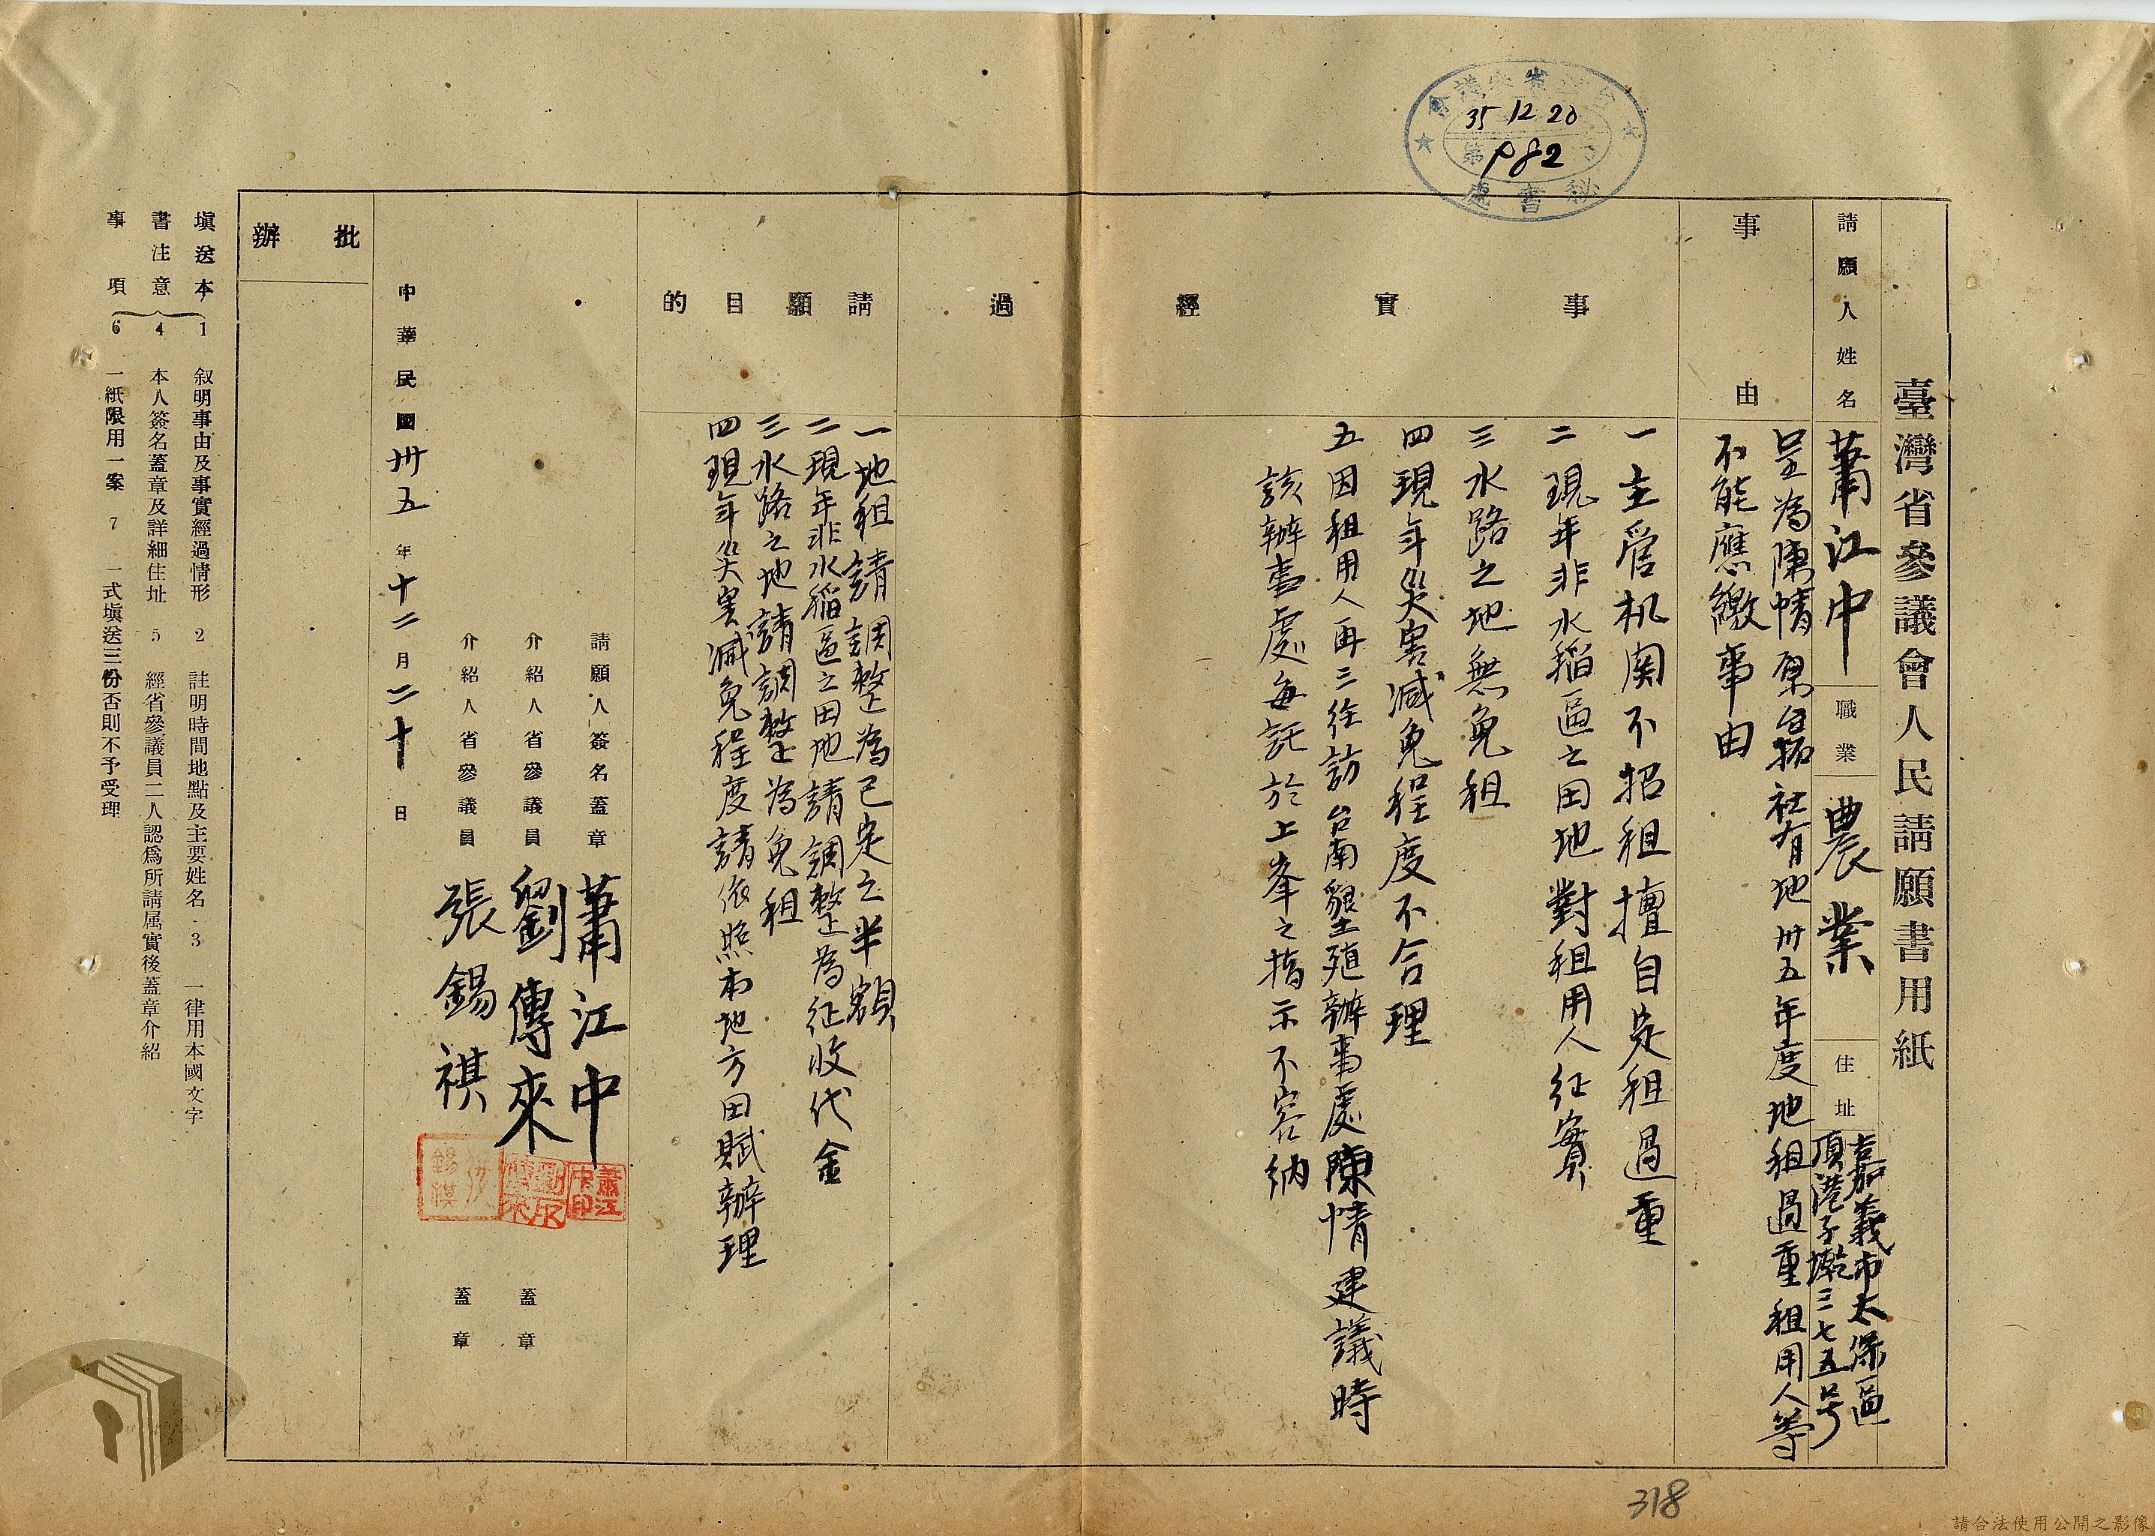 臺灣省參議會人民請願書用紙
請願人姓名 蕭江中 職業 農業 住址 嘉義市太保區
頂港子墘三七五号
事由
呈為陳情原台拓社有地卅五年度地租過重租用人等
不能應繳事由
事實經過
一主管机関不招租擅自定租過重
二現年非水稲區之田地對租用人征實
三水路之地無免租
四現年災害減免程度不合理
五因租用人再三往訪台南墾殖辦事處陳情建議時
該辦事處每託於上峯之指示不容納
請願目的
一地租請調整為已定之半額
二現年非水稲區之田地請調整為征收代金
三水路之地請調整為免租
四現年災害減免程度請依照本地方田賦辦理
請願人簽名蓋章 蕭江中
介紹人省參議員 劉傳來 蓋章
介紹人省參議員 張錫祺 蓋章
中華民國卅五年十二月二十日
批辦
填送本書注意事項
1 叙明事由及事實經過情形 2 註明時間地點及主要姓名 3 一律用本國文字
4 本人簽名蓋章及詳細住址 5 經省參議員二人認爲所請属實後蓋章介紹
6 一紙限用一案 7 一式填送三份否則不予受理
35 12 20
982
秘書處
蕭江中印
318
請合法使用公開之影像